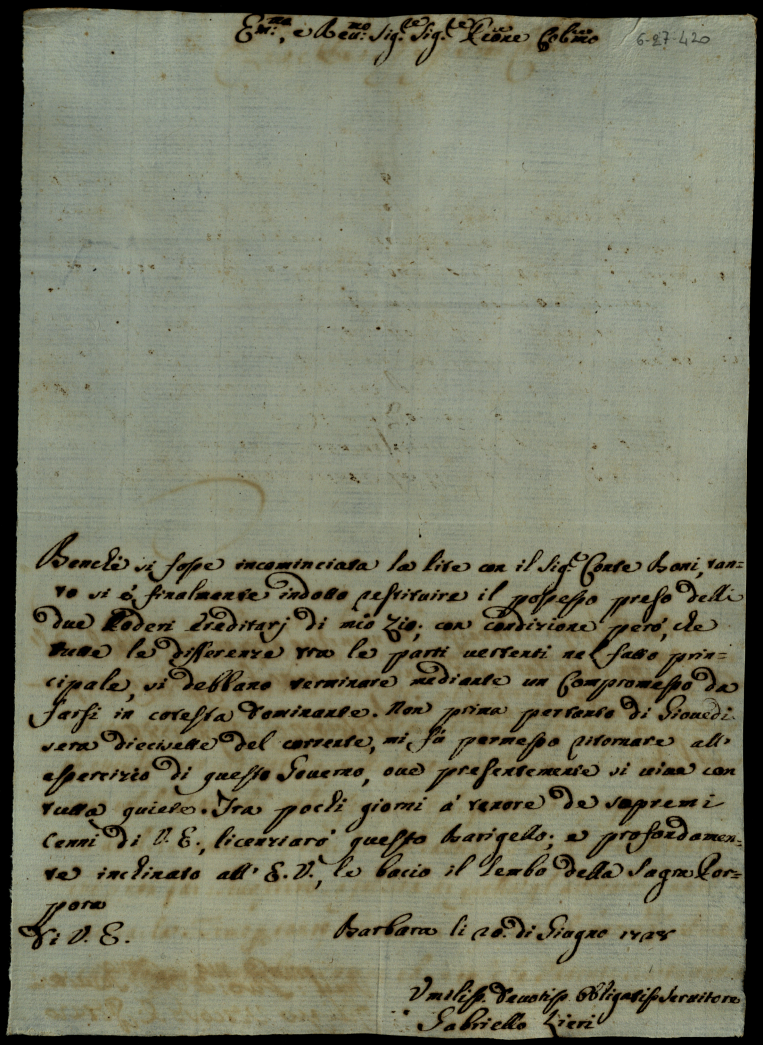 Em.mo, e Reu.mo Sig.re Sig.re P'rone Col.mo
6-27-420
Benche si fosse incominciata la lite con il Sig.r Conte Boni, tan=
to si é finalmente indotto restituire il possesso preso delli
due Poderi Ereditarj di mio Zio; con condizione peró, che
tutte le differenze tra le parti uertenti nel fatto prin=
cipale, si debbano terminare mediante un Compromesso da
farsi in cotesta Dominante. Non prima pertanto di Giouedi
sera diecisette del corrente, mi fá permesso ritornare all'
essercizio di questo Gouerno, oue presentemente si uiue con
tutta quiete. Fra pochi giorni á tenore de supremi
Cenni di V. E., licenziaró questo Barigello; e profondamen=
te inclinato all' E. V., le bacio il lembo della Sagra Por=
pora
Di V. E. Barbara li 20. di Giugno
Vmiliss. Deuotiss. Obligatiss. Seruitore
Gabriello